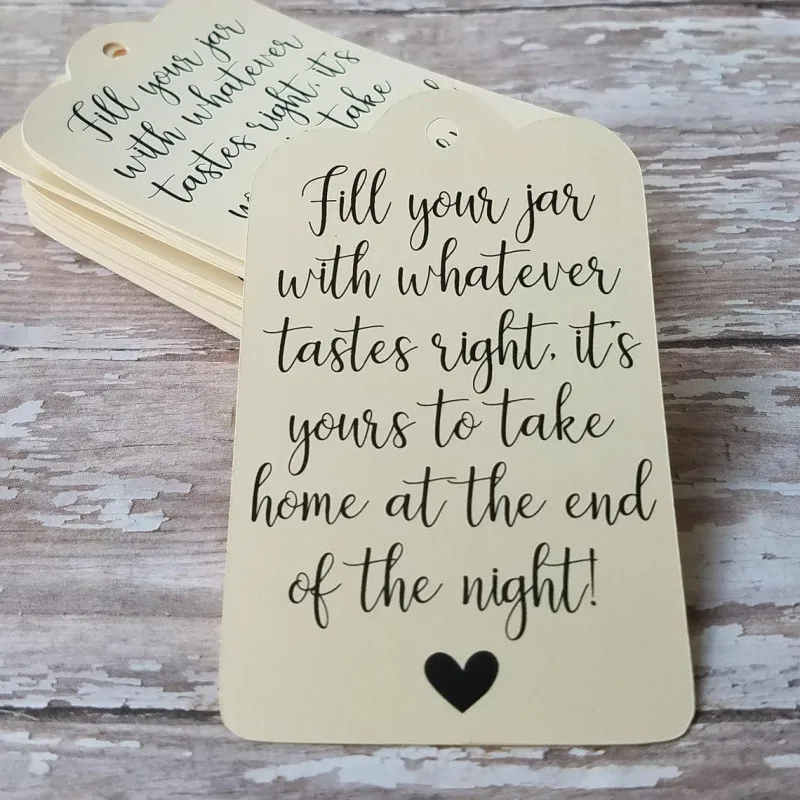 Fill your jar
with whatever
tastes right, it's
take
Fill your jar
with whatever
tastes right, it's
yours to take
home at the end
of the night!